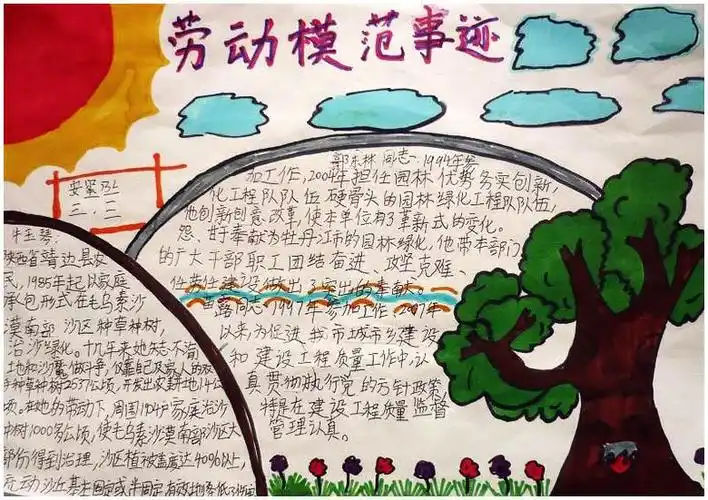 劳动模范事迹
郭东林同志,1994年参
加工作,2004年担任园林 优势务实创新,
化工程队队伍 硬骨头的园林绿化工程队队伍,
他创新创意改革,使本单位有3革新式的变化。
怨、甘于奉献为牡丹江市的园林绿化,他带本部门
的广大干部职工团结奋进、攻坚克难、
任劳任 建设做出了突出的奉献、
露同志,1997年参加工作,2007年
以来,为促进我市城市乡建设
和建设工程质量工作中,认
真贯彻执行党的方针政策
特是在建设工程质量监督
管理认真。
三.二
牛玉琴:
陕西省靖边县农
民,1985年起以家庭
承包形式在毛乌素沙
漠南部沙区种草种树,
治沙绿化。十九年来她矢志不渝
土地和沙魔做斗争,仅靠自己及家人的双
手种草种树2637公顷,开发出农耕地14公
顷。在她的劳动下,周围104户家庭治沙
种树1000多公顷,使毛乌素沙漠南部沙区大
部份得到治理,沙区植被盖度达40%以上,
流动沙丘基本固定或半固定,有效地降低